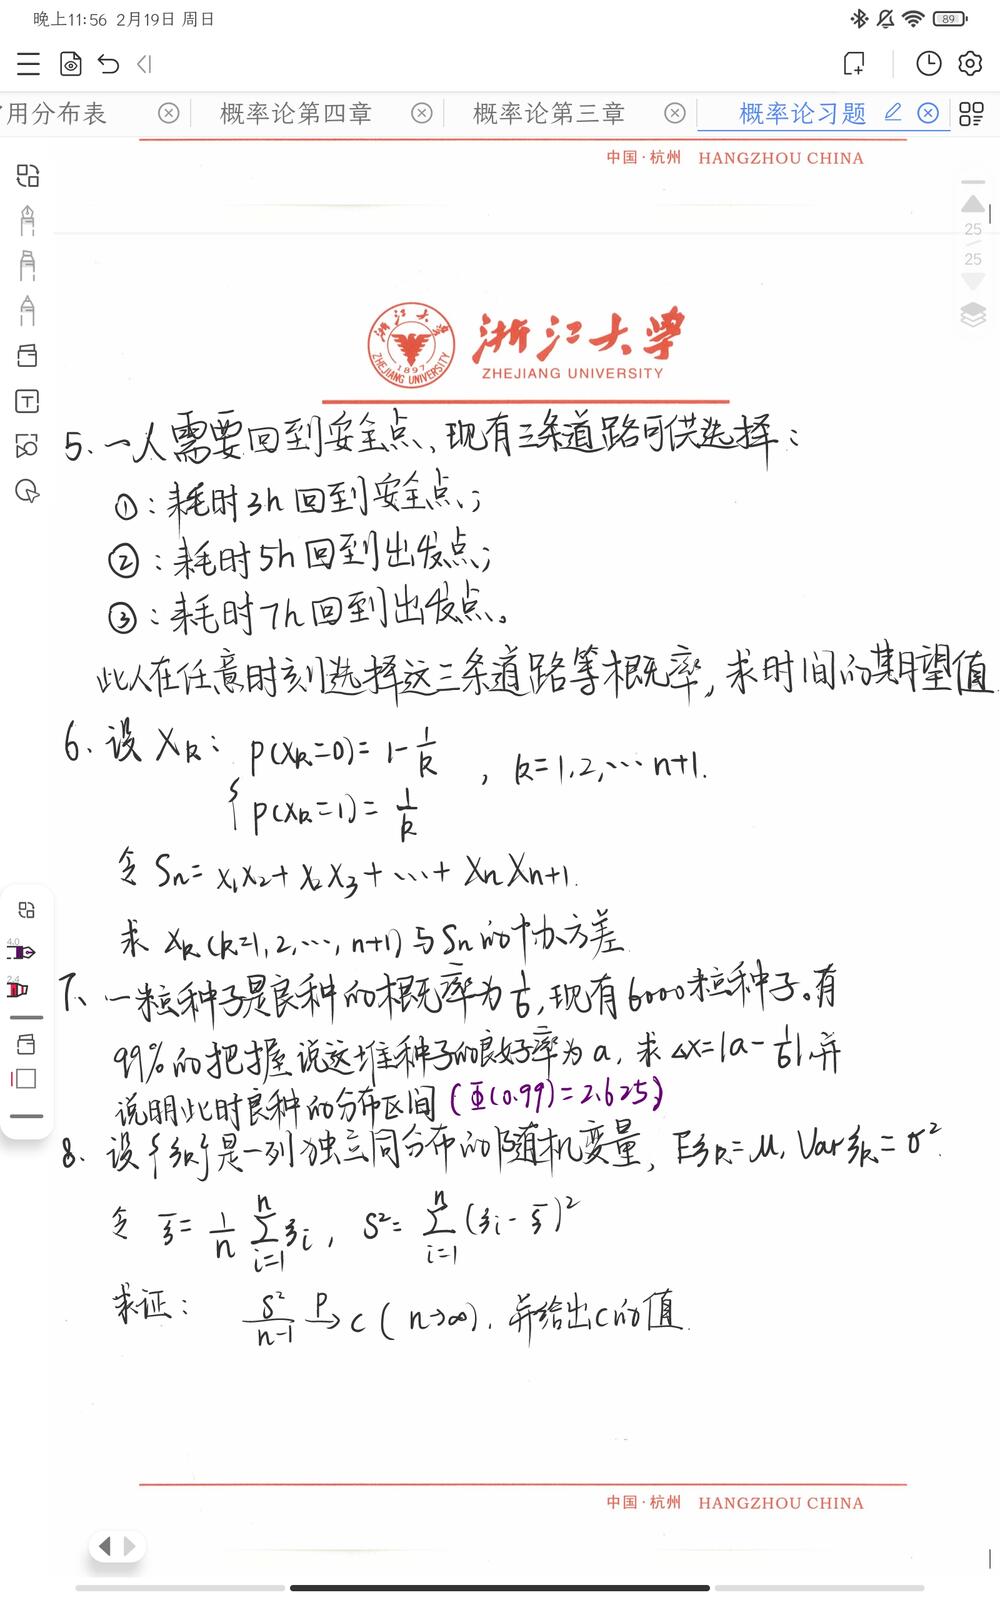 晚上11:56 2月19日 周日
89
用分布表
概率论第四章
概率论第三章
概率论习题
中国·杭州 HANGZHOU CHINA
25
25
浙江大学
ZHEJIANG UNIVERSITY
1897
ZHEJIANG UNIVERSITY
5. 一人需要回到安全点、现有三条道路可供选择：
①：耗时3h回到安全点；
②：耗时5h回到出发点；
③：耗时7h回到出发点。
此人在任意时刻选择这三条道路等概率，求时间的期望值.
6. 设 X_k： P(X_k=0)=1-1/k
{ P(X_k=1)=1/k , k=1,2,…n+1.
令 S_n=X_1X_2+X_2X_3+…+X_nX_{n+1}.
求 X_k (k=1,2,…,n+1)与S_n的协方差.
7、一粒种子是良种的概率为1/6,现有6000粒种子。有
99%的把握说这堆种子的良好率为a，求△x=|a-1/6|,并
说明此时良种的分布区间(Φ(0.99)=2.625)
8、设{ξ_k}是一列独立同分布的随机变量，Eξ_k=μ, Varξ_k=σ².
令 ξ̄=1/n ∑_{i=1}^{n} ξ_i, S²=∑_{i=1}^{n}(ξ_i-ξ̄)²
求证： S²/(n-1) →^P c (n→∞), 并给出c的值.
中国·杭州 HANGZHOU CHINA
4.0
2.4